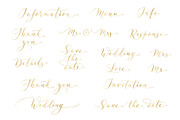 Information Menu Info
Thank you
Mr & Mrs
Response
Save the date
Wedding Mrs
Details
Love Mr
Thank you Invitation
Wedding Save the date